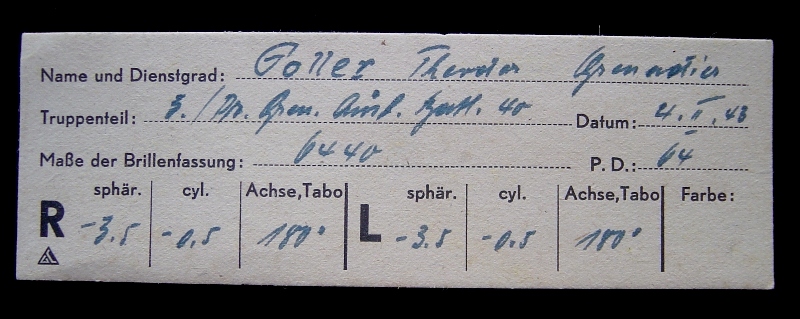 Name und Dienstgrad: Poller Theodor Grenadier
Truppenteil: 3./Pz. Gren. Ausb. Batl. 40 Datum: 4. II. 43
Maße der Brillenfassung: 6440 P.D.: 64
sphär. cyl. Achse,Tabo sphär. cyl. Achse,Tabo Farbe:
R -3.5 -0.5 180° L -3.5 -0.5 180°